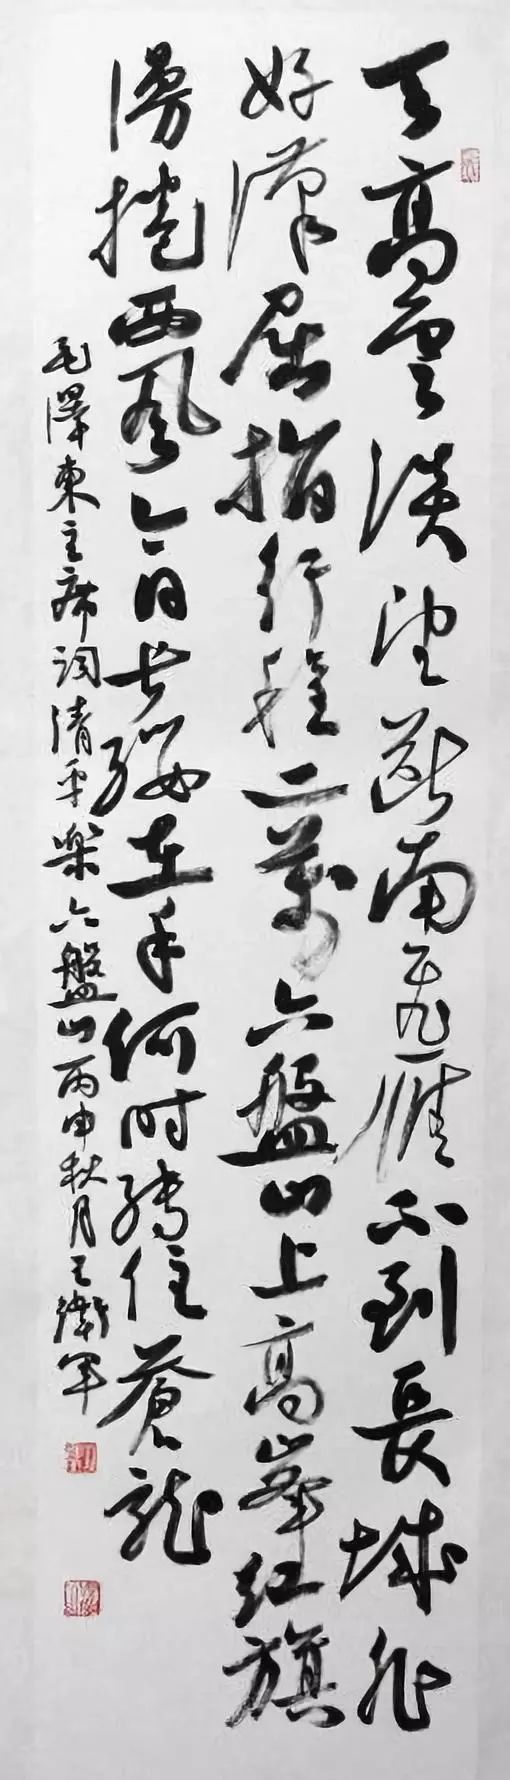 天高雲淡望斷南飛雁不到長城非
好漢屈指行程二萬六盤山上高峯紅旗
漫捲西風今日長纓在手何時縛住蒼龍
毛澤東主席詞清平樂六盤山丙申秋月王衛軍